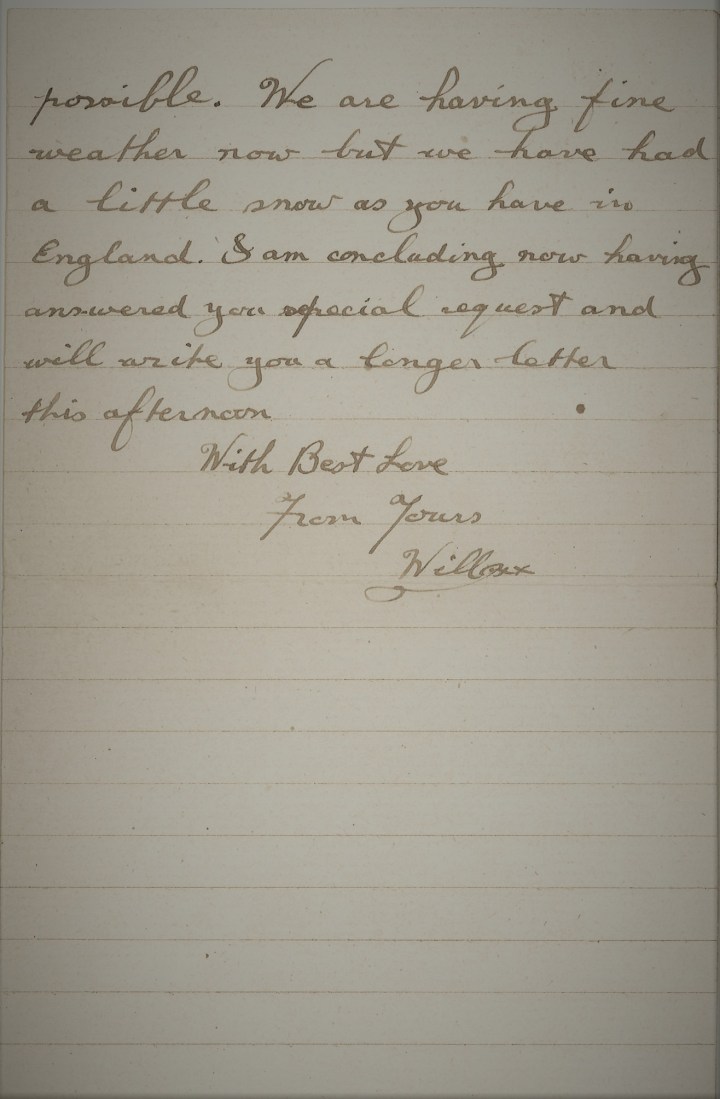 possible. We are having fine
weather now but we have had
a little snow as you have in
England. I am concluding now having
answered you special request and
will write you a longer letter
this afternoon
With Best Love
From Yours